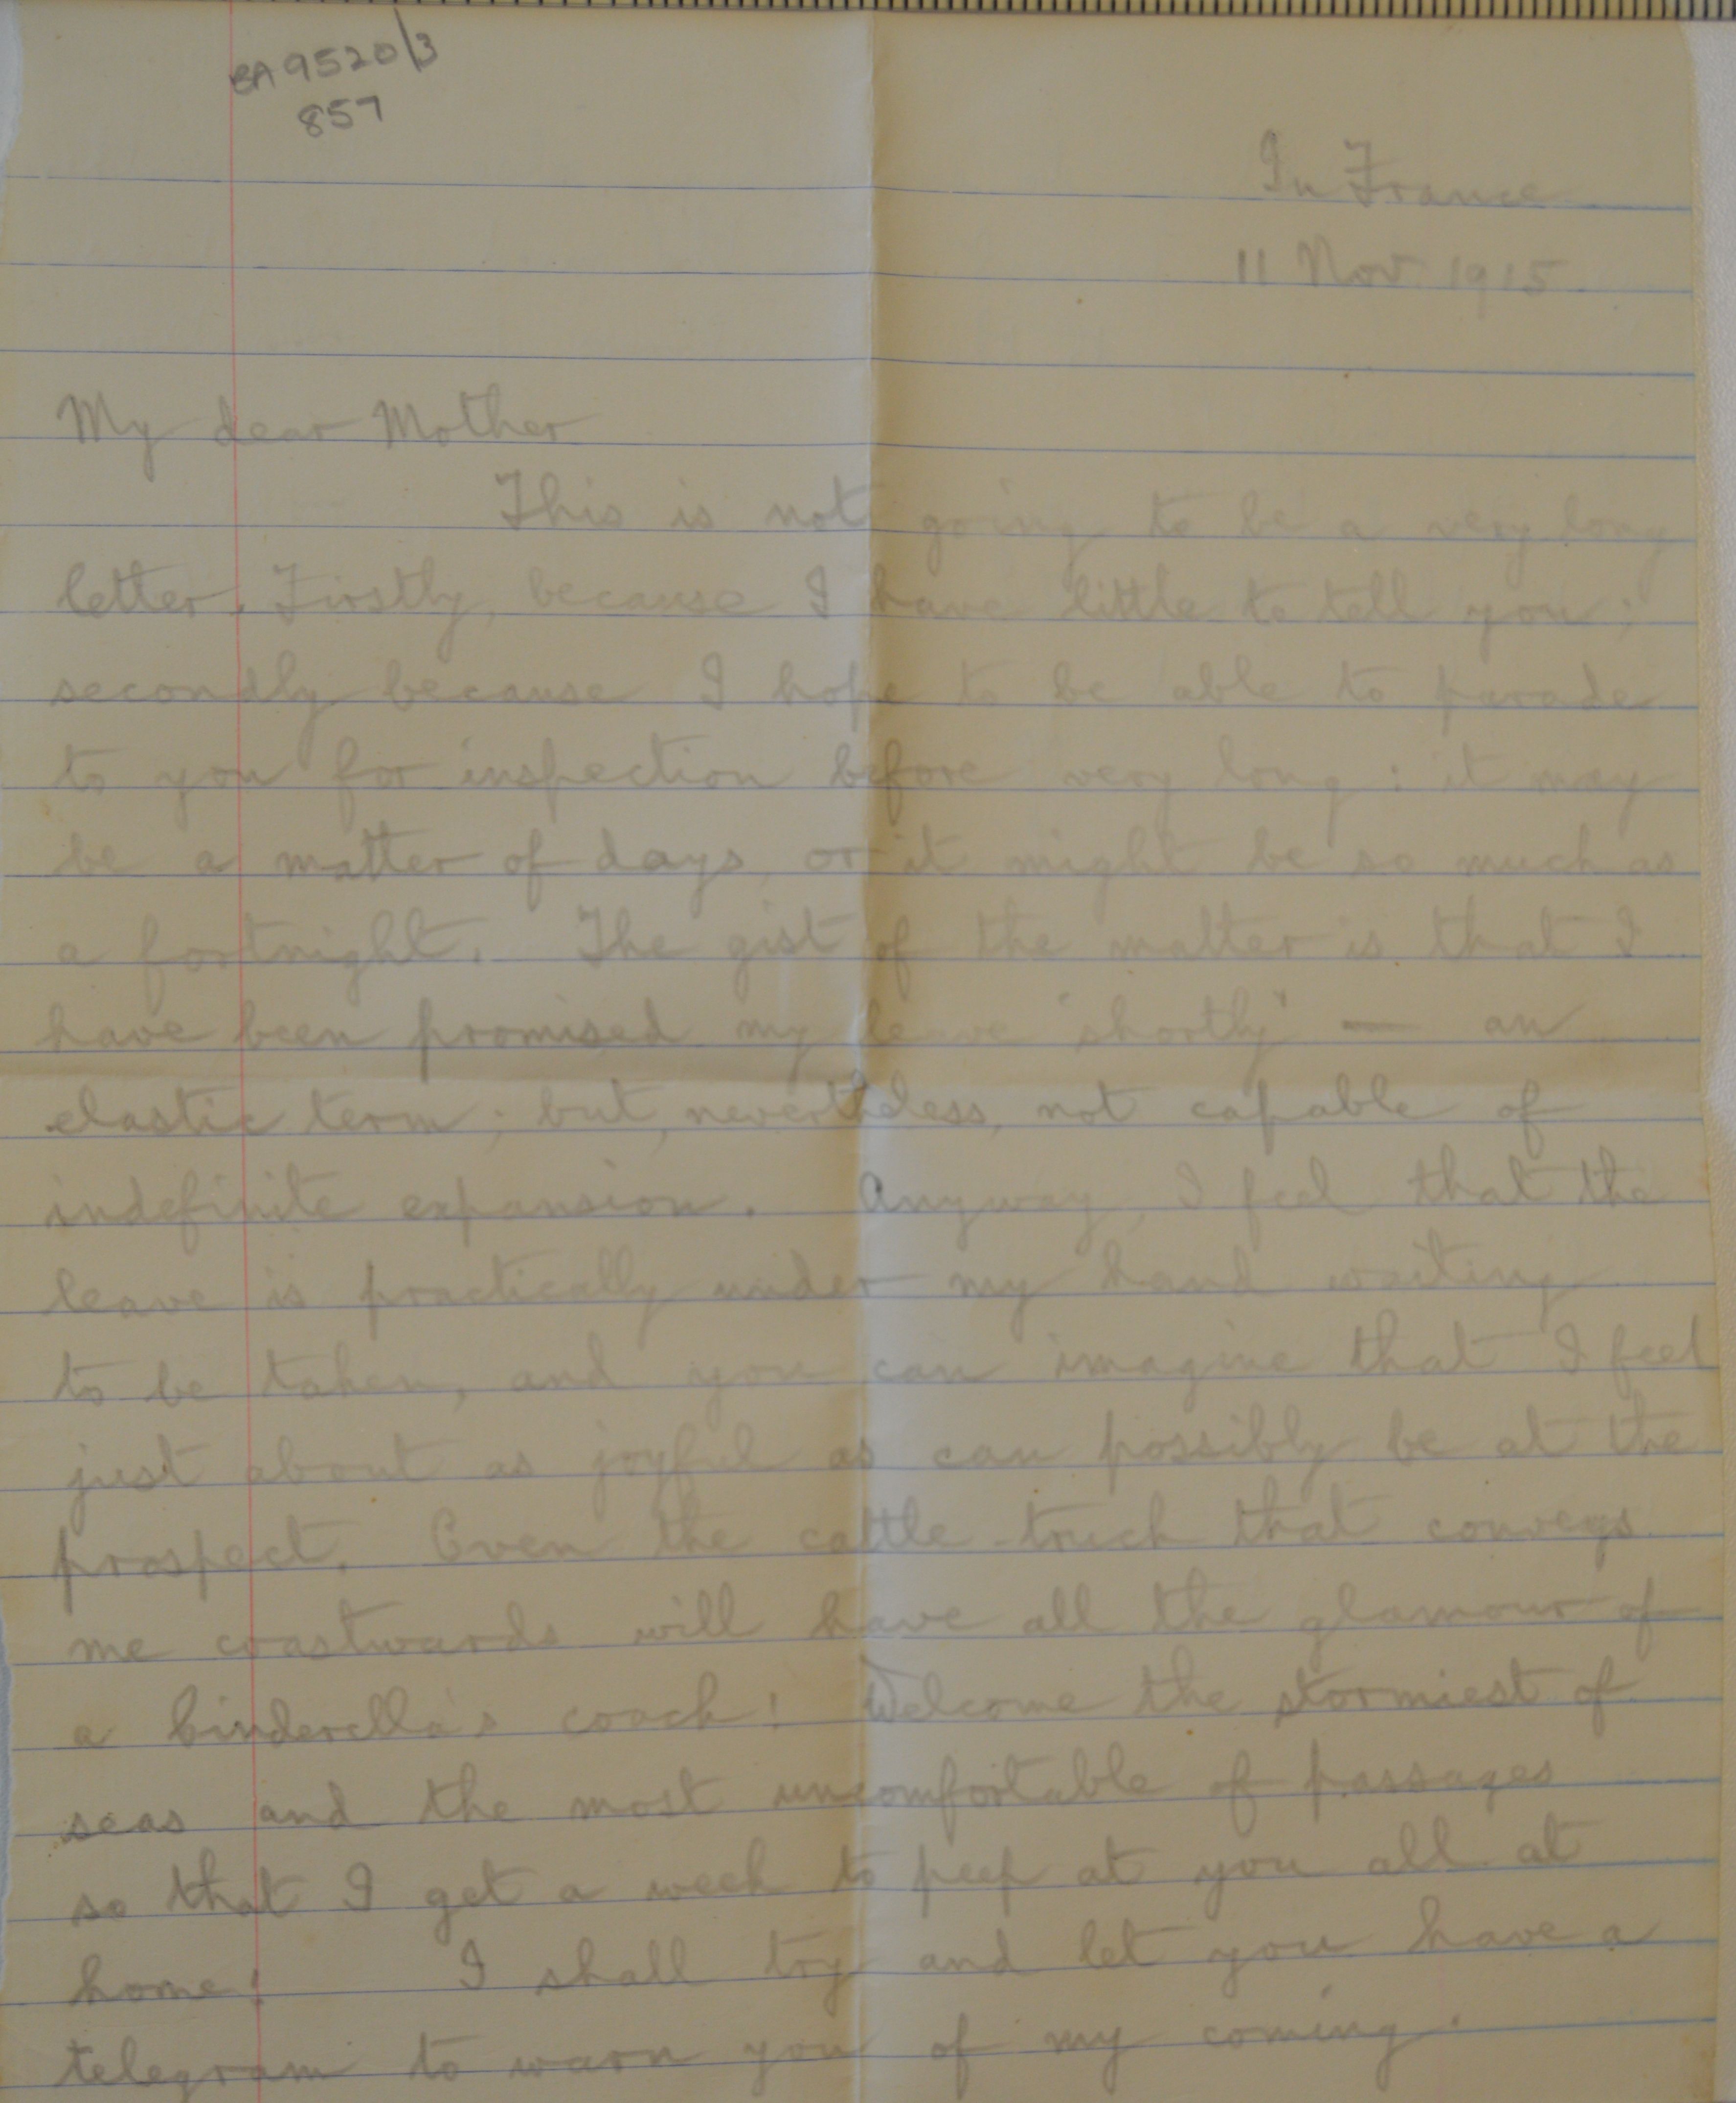 BA 9520/3
857
In France
11 Nov. 1915.
My dear Mother
This is not going to be a very long
letter. Firstly, because I have little to tell you;
secondly because I hope to be able to parade
to you for inspection before very long: it may
be a matter of days, or it might be so much as
a fortnight. The gist of the matter is that I
have been promised my leave 'shortly' — an
elastic term; but, nevertheless, not capable of
indefinite expansion. Anyway, I feel that the
leave is practically under my hand waiting
to be taken, and you can imagine that I feel
just about as joyful as can possibly be at the
prospect. Even the cattle-truck that conveys
me coastwards will have all the glamour of
a Cinderella's coach! Welcome the stormiest of
seas and the most uncomfortable of passages
so that I get a week to peep at you all at
home! I shall try and let you have a
telegram to warn you of my coming.